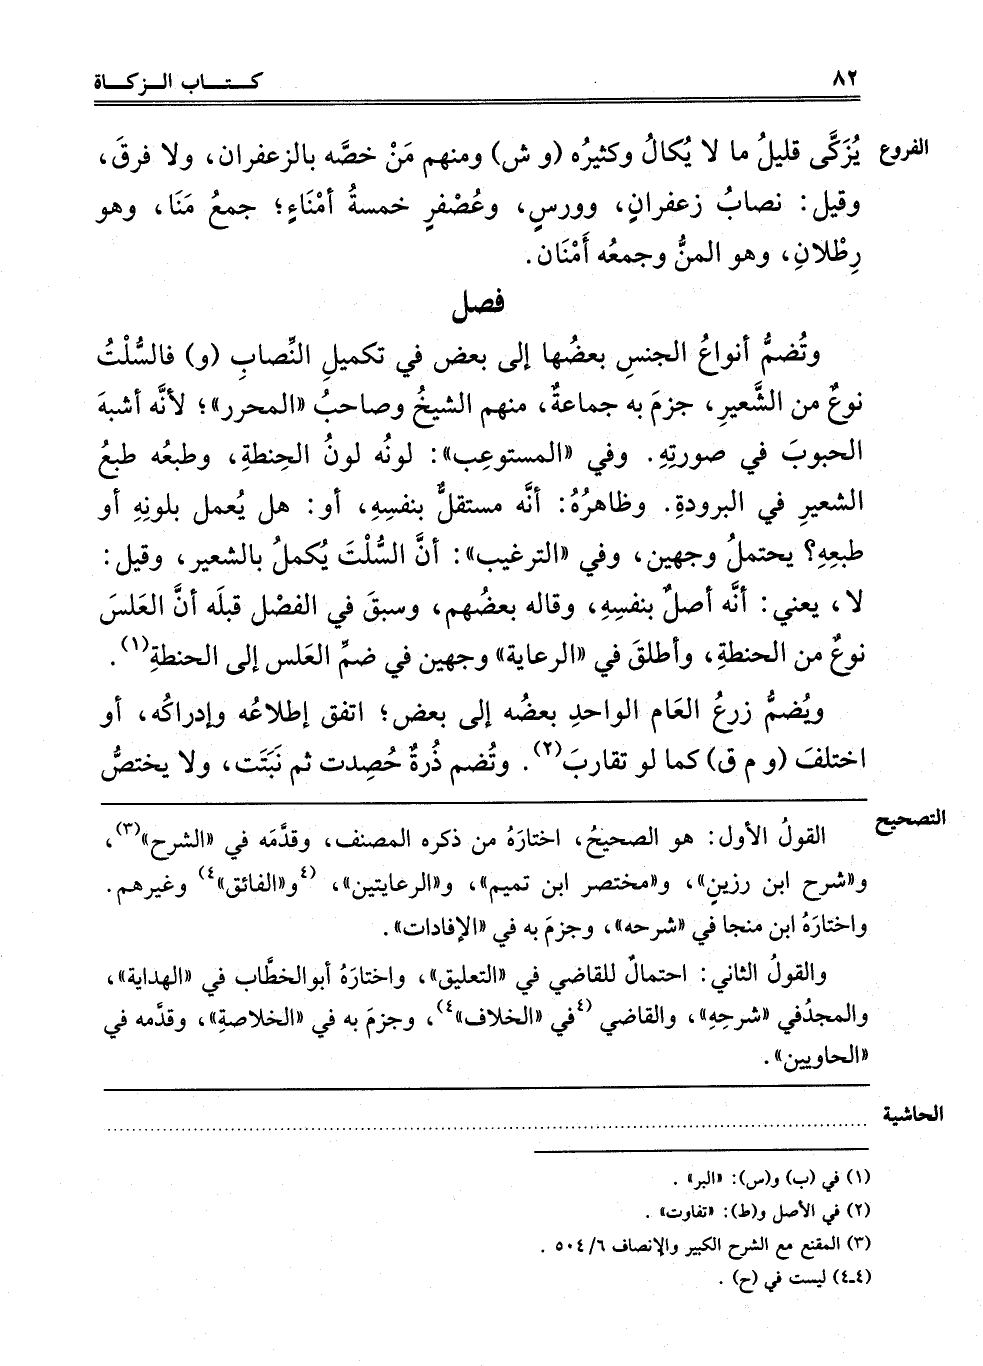 ٨٢ كـتـاب الـزكـاة
الفروع يُزَكَّى قليلُ ما لا يُكالُ وكثيرُه (و ش) ومنهم مَنْ خصَّه بالزعفران، ولا فرقَ،
وقيل: نصابُ زعفرانٍ، وورسٍ، وعُصْفرٍ خمسةُ أمْناءٍ؛ جمعُ مَنَا، وهو
رِطْلانِ، وهو المنُّ وجمعُه أَمْنَان.
فصل
وتُضمُّ أنواعُ الجنسِ بعضُها إلى بعض في تكميلِ النِّصابِ (و) فالسُّلْتُ
نوعٌ من الشَّعيرِ، جزمَ به جماعةٌ، منهم الشيخُ وصاحبُ «المحرر»؛ لأنَّه أشبهَ
الحبوبَ في صورتِهِ. وفي «المستوعِب»: لونُه لونُ الحِنطةِ، وطبعُه طبعُ
الشعيرِ في البرودةِ. وظاهرُهُ: أنَّه مستقلٌّ بنفسِهِ، أو: هل يُعمل بلونِهِ أو
طبعِهِ؟ يحتملُ وجهين، وفي «الترغيب»: أنَّ السُّلْتَ يُكملُ بالشعير، وقيل:
لا، يعني: أنَّه أصلٌ بنفسِهِ، وقاله بعضُهم، وسبقَ في الفصْل قبلَه أنَّ العَلسَ
نوعٌ من الحنطةِ، وأطلقَ في «الرعاية» وجهين في ضمِّ العَلس إلى الحنطةِ(١).
ويُضمُّ زرعُ العَام الواحدِ بعضُه إلى بعض؛ اتفق إطلاعُه وإدراكُه، أو
اختلفَ (و م ق) كما لو تقاربَ(٢). وتُضم ذُرةٌ حُصِدت ثم نَبَتَت، ولا يختصُّ
التصحيح القولُ الأول: هو الصحيحُ، اختارَهُ من ذكره المصنف، وقدَّمَه في «الشرح»(٣)،
و«شرح ابن رزينٍ»، و«مختصر ابن تميم»، و«الرعايتين»، (٤و«الفائق»٤) وغيرهم.
واختارَهُ ابن منجا في «شرحه»، وجزمَ به في «الإفادات».
والقولُ الثاني: احتمالٌ للقاضي في «التعليق»، واختارَهُ أبوالخطَّاب في «الهداية»،
والمجدُفي «شرحِهِ»، والقاضي (٤في «الخلاف»٤)، وجزمَ به في «الخلاصةِ»، وقدَّمه في
«الحاويين».
الحاشية
(١) في (ب) و(س): «البر».
(٢) في الأصل و(ط): «تفاوت».
(٣) المقنع مع الشرح الكبير والإنصاف ٥٠٤/٦.
(٤-٤) ليست في (ح).